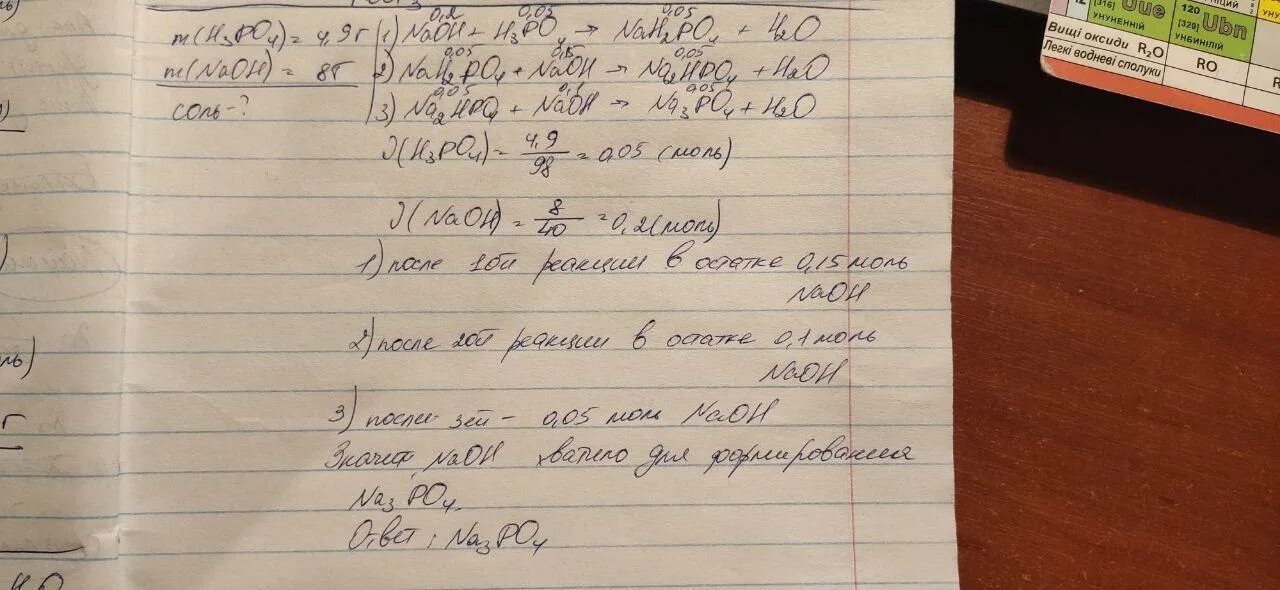 m(H₃PO₄) = 4,9г
m(NaOH) = 8г
соль - ?
0,2 0,05 0,05
1) NaOH + H₃PO₄ → NaH₂PO₄ + H₂O
0,05 0,15 0,05
2) NaH₂PO₄ + NaOH → Na₂HPO₄ + H₂O
0,05 0,1 0,05
3) Na₂HPO₄ + NaOH → Na₃PO₄ + H₂O
ν(H₃PO₄) = 4,9/98 = 0,05 (моль)
ν(NaOH) = 8/40 = 0,2 (моль)
1) после 1ой реакции в остатке 0,15 моль
NaOH
2) после 2ой реакции в остатке 0,1 моль
NaOH
3) после 3ей - 0,05 моль NaOH
Значит, NaOH хватило для формирования
Na₃PO₄.
Ответ: Na₃PO₄
[316] Uue
УНУНЕННІЙ
120 Ubn
[320]
УНБИНІЛІЙ
Вищі оксиди R₂O RO
Легкі водневі сполуки